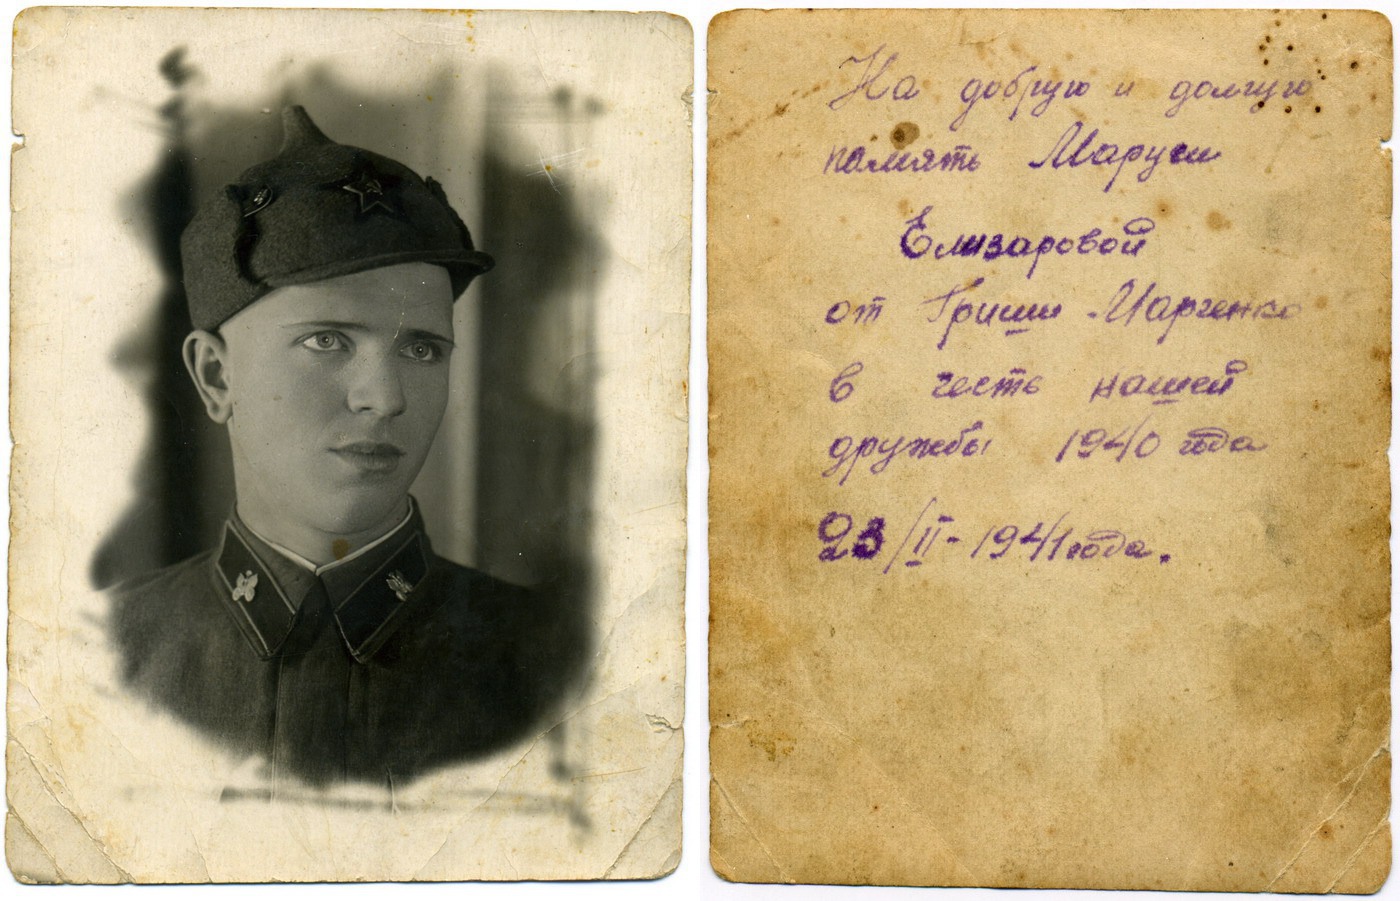 На добрую и долгую
память Маруси
Елизаровой
от Гриши Марченко
в честь нашей
дружбы 1940 года
23/II-1941 года.